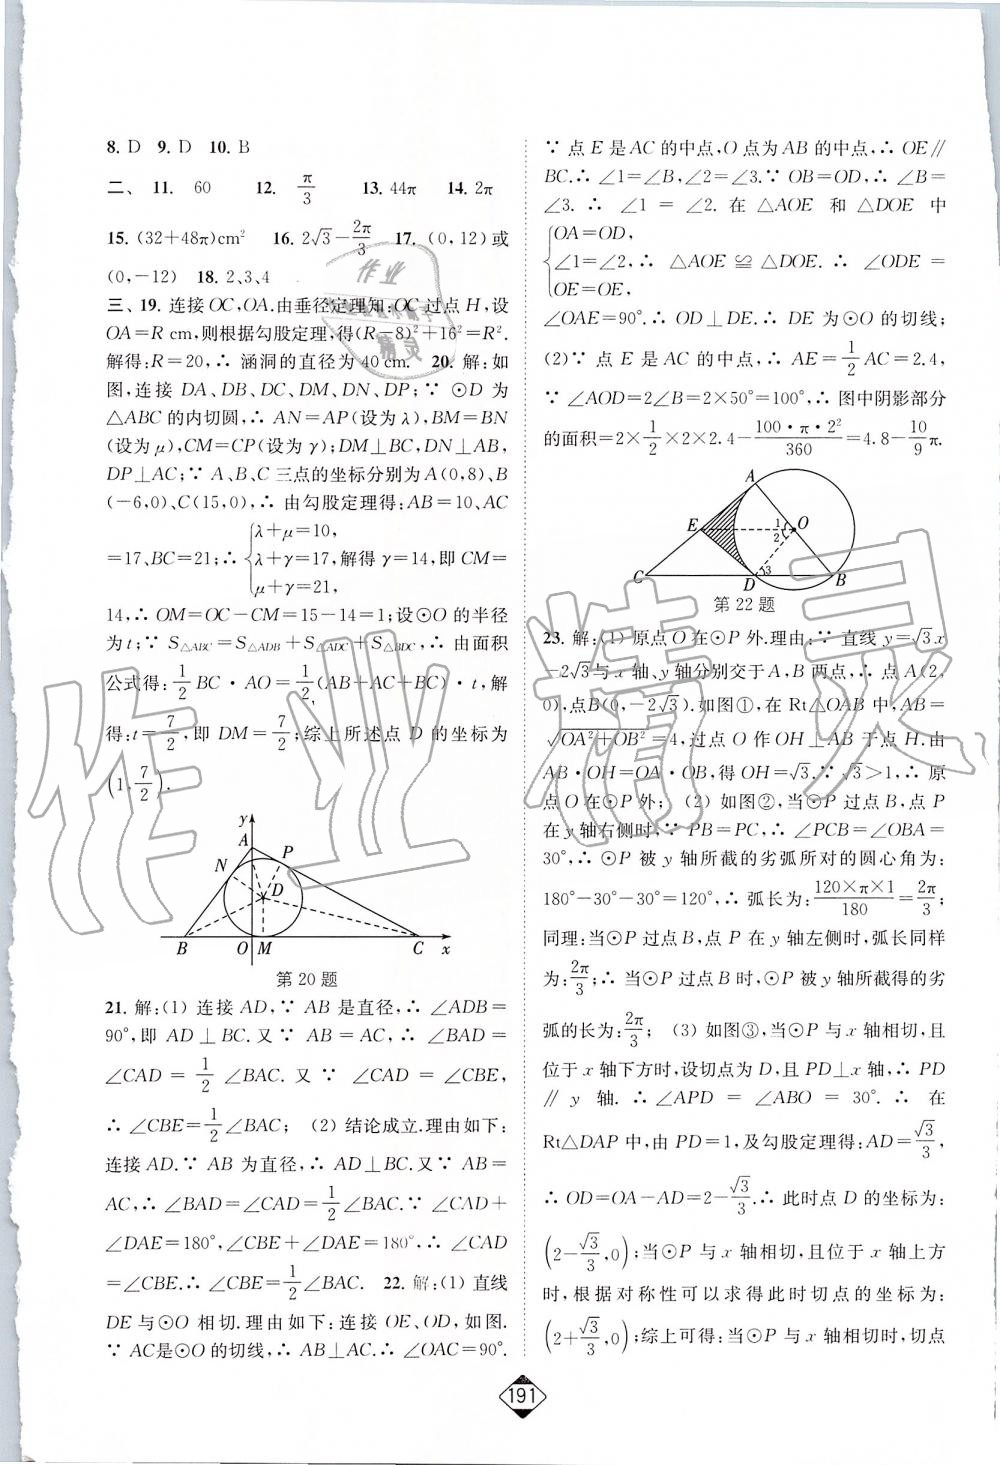 8. D　9. D　10. B
二、11.　60　　12.　π/3　　13. 44π　14. 2π
15. (32+48π)cm²　16. 2√3−2π/3　17. (0,12)或
(0,−12)　18. 2、3、4
三、19. 连接OC,OA.由垂径定理知:OC过点H,设
OA=R cm,则根据勾股定理,得(R−8)²+16²=R².
解得:R=20,∴ 涵洞的直径为40 cm.　20. 解:如
图,连接 DA、DB、DC、DM、DN、DP;∵ ⊙D 为
△ABC的内切圆,∴ AN=AP(设为λ),BM=BN
(设为μ),CM=CP(设为γ);DM⊥BC,DN⊥AB,
DP⊥AC;∵ A、B、C 三点的坐标分别为A(0,8)、B
(−6,0)、C(15,0),∴ 由勾股定理得:AB=10、AC
=17、BC=21;∴ {λ+μ=10, λ+γ=17, μ+γ=21, 解得γ=14,即CM=
14,∴ OM=OC−CM=15−14=1;设⊙O的半径
为t;∵ S△ABC=S△ADB+S△ADC+S△BDC,∴ 由面积
公式得:1/2 BC·AO=1/2(AB+AC+BC)·t,解
得:t=7/2,即 DM=7/2;综上所述点 D 的坐标为
(1,7/2).
y
A
N
P
D
B
O
M
C
x
第20题
21. 解:(1) 连接 AD,∵ AB 是直径,∴ ∠ADB=
90°,即 AD⊥BC.又∵ AB=AC,∴ ∠BAD=
∠CAD=1/2∠BAC.又∵ ∠CAD=∠CBE,
∴ ∠CBE=1/2∠BAC; (2) 结论成立.理由如下:
连接AD.∵ AB 为直径,∴ AD⊥BC.又∵ AB=
AC,∴ ∠BAD=∠CAD=1/2∠BAC.∵ ∠CAD+
∠DAE=180°,∠CBE+∠DAE=180°,∴ ∠CAD
=∠CBE.∴ ∠CBE=1/2∠BAC.　22. 解:(1) 直线
DE与⊙O 相切.理由如下:连接OE、OD,如图.
∵ AC是⊙O的切线,∴ AB⊥AC.∴ ∠OAC=90°.
∵ 点E是AC的中点,O点为AB的中点,∴ OE∥
BC.∴ ∠1=∠B,∠2=∠3.∵ OB=OD,∴ ∠B=
∠3.∴ ∠1=∠2.在△AOE 和△DOE 中
{OA=OD,
∠1=∠2,∴ △AOE≌△DOE.∴ ∠ODE=
OE=OE,
∠OAE=90°.∴ OD⊥DE.∴ DE 为⊙O的切线;
(2)∵ 点 E 是 AC 的中点,∴ AE=1/2AC=2.4,
∵ ∠AOD=2∠B=2×50°=100°,∴ 图中阴影部分
的面积=2×1/2×2×2.4−100·π·2²/360=4.8−10/9π.
A
E
1
2
O
3
C
D
B
第22题
23. 解:(1) 原点O在⊙P外.理由:∵ 直线y=√3x
−2√3与x轴、y轴分别交于A、B两点,∴ 点A(2,
0),点B(0,−2√3).如图①,在Rt△OAB中,AB=
√OA²+OB²=4,过点 O 作OH⊥AB于点H.由
AB·OH=OA·OB,得OH=√3.∵ √3>1,∴ 原
点O在⊙P外; (2) 如图②,当⊙P过点B,点P
在y轴右侧时,∵ PB=PC,∴ ∠PCB=∠OBA=
30°,∴ ⊙P 被 y 轴所截的劣弧所对的圆心角为:
180°−30°−30°=120°,∴ 弧长为:120×π×1/180=2π/3;
同理:当⊙P过点B,点P在y轴左侧时,弧长同样
为:2π/3;∴ 当⊙P过点B时,⊙P被y轴所截得的劣
弧的长为:2π/3; (3) 如图③,当⊙P与x轴相切,且
位于 x 轴下方时,设切点为D,且 PD⊥x 轴,∴ PD
∥y 轴.∴ ∠APD=∠ABO=30°.∴ 在
Rt△DAP中,由 PD=1,及勾股定理得:AD=√3/3,
∴ OD=OA−AD=2−√3/3.∴ 此时点 D 的坐标为:
(2−√3/3,0);当⊙P 与x轴相切,且位于x轴上方
时,根据对称性可以求得此时切点的坐标为:
(2+√3/3,0);综上可得:当⊙P与x轴相切时,切点
191
作业精灵